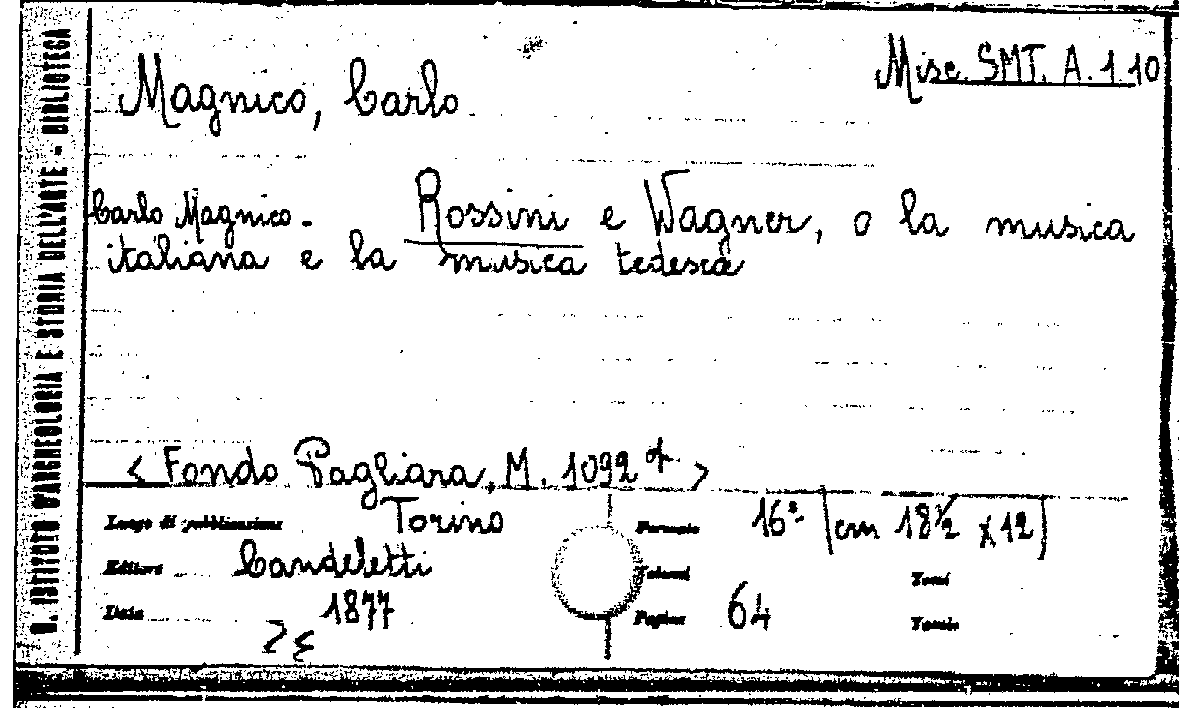 Misc. SMT. A. 1.10
Magnico, Carlo
Carlo Magnico - Rossini e Wagner, o la musica
italiana e la musica tedesca
< Fondo Pagliara, M. 1092 op. >
Luogo di pubblicazione Torino Formato 16° [cm 18½ x 12]
Editore Candeletti Volumi Tomi
Data 1877 Pagine 64 Tavole
R. ISTITUTO D'ARCHEOLOGIA E STORIA DELL'ARTE - BIBLIOTECA